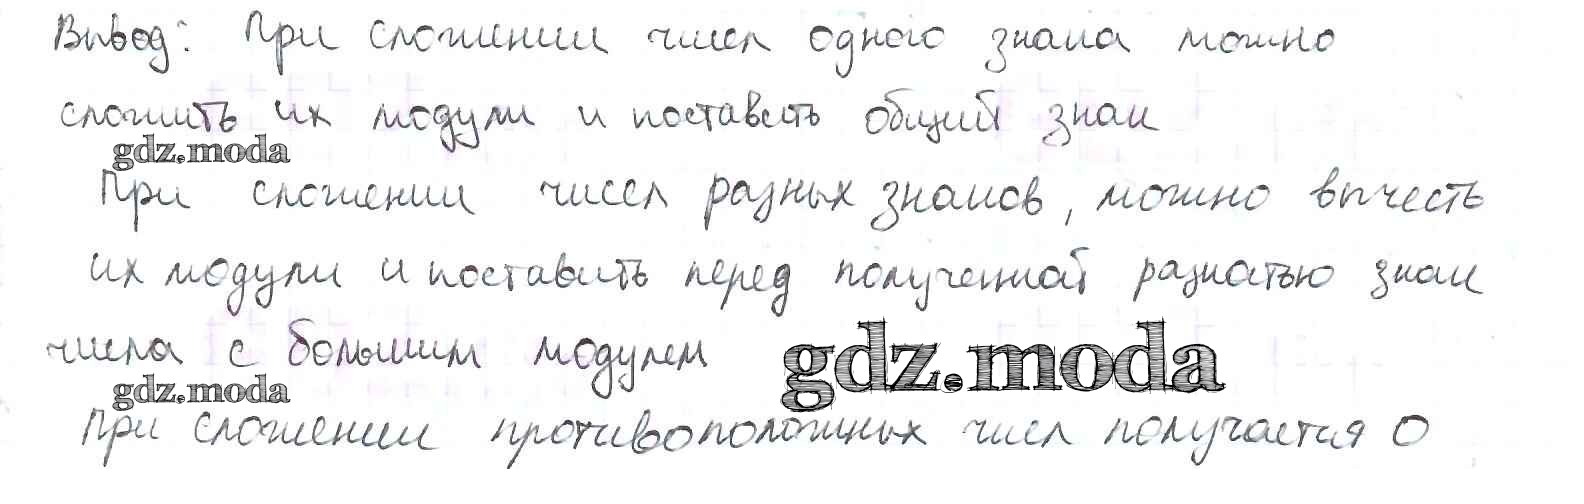 Вывод: При сложении чисел одного знака можно
сложить их модули и поставить общий знак
gdz.moda
При сложении чисел разных знаков, можно вычесть
их модули и поставить перед полученной разностью знак
числа с большим модулем
gdz.moda
gdz.moda
При сложении противоположных чисел получается 0